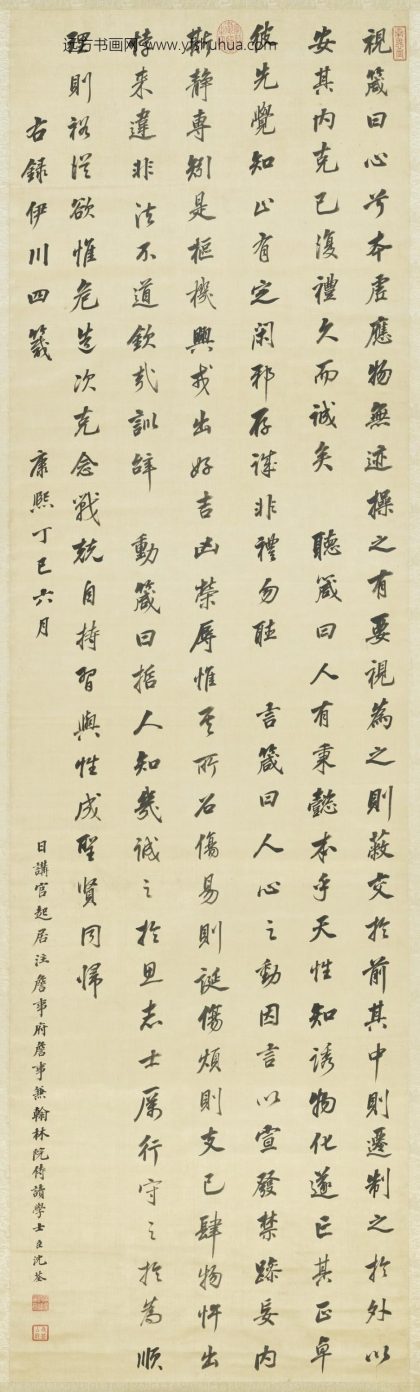 視箴曰心兮本虛應物無迹操之有要視為之則蔽交於前其中則遷制之於外以
安其内克己復禮久而誠矣 聽箴曰人有秉懿本乎天性知誘物化遂亡其正卓
彼先覺知止有定閑邪存誠非禮勿聽 言箴曰人心之動因言以宣發禁躁妄内
斯静專矧是樞機興戎出好吉凶榮辱惟其所召傷易則誕傷煩則支己肆物忤出
悖来違非法不道欽哉訓辞 動箴曰哲人知幾誠之於思志士厲行守之於為順
理則裕從欲惟危造次克念戰兢自持習與性成聖賢同歸
右録伊川四箴 康熙丁巳六月
日講官起居注詹事府詹事兼翰林院侍讀學士臣沈荃
远方书画网 www.yfshuhua.com